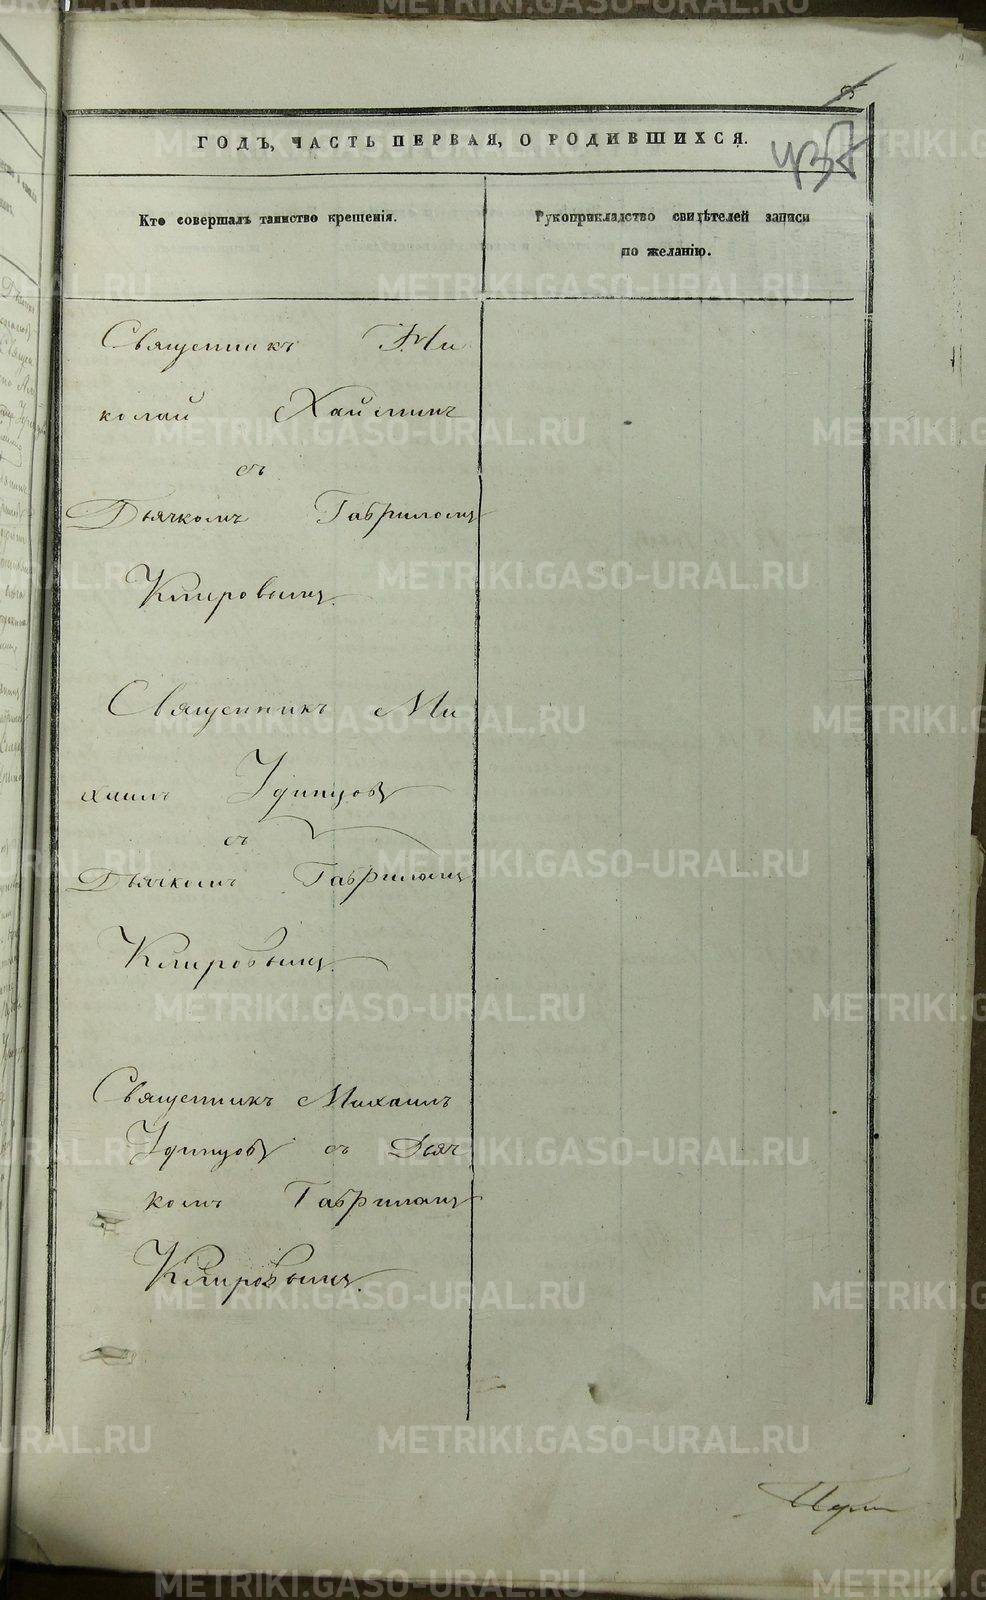 ГОДЪ, ЧАСТЬ ПЕРВАЯ, О РОДИВШИХСЯ.
Кто совершалъ таинство крещенія.
Рукоприкладство свидѣтелей записи
по желанію.
Священникъ Ни
колай
съ
Дьячкомъ Гавриломъ
Кпировымъ.
Священникъ Ми
хаилъ Удинцовъ
съ
Дьячкомъ Гавриломъ
Кпировымъ.
Священникъ Михаилъ
Удинцовъ съ Дьяч
комъ Гавриломъ
Кпировымъ.
METRIKI.GASO-URAL.RU